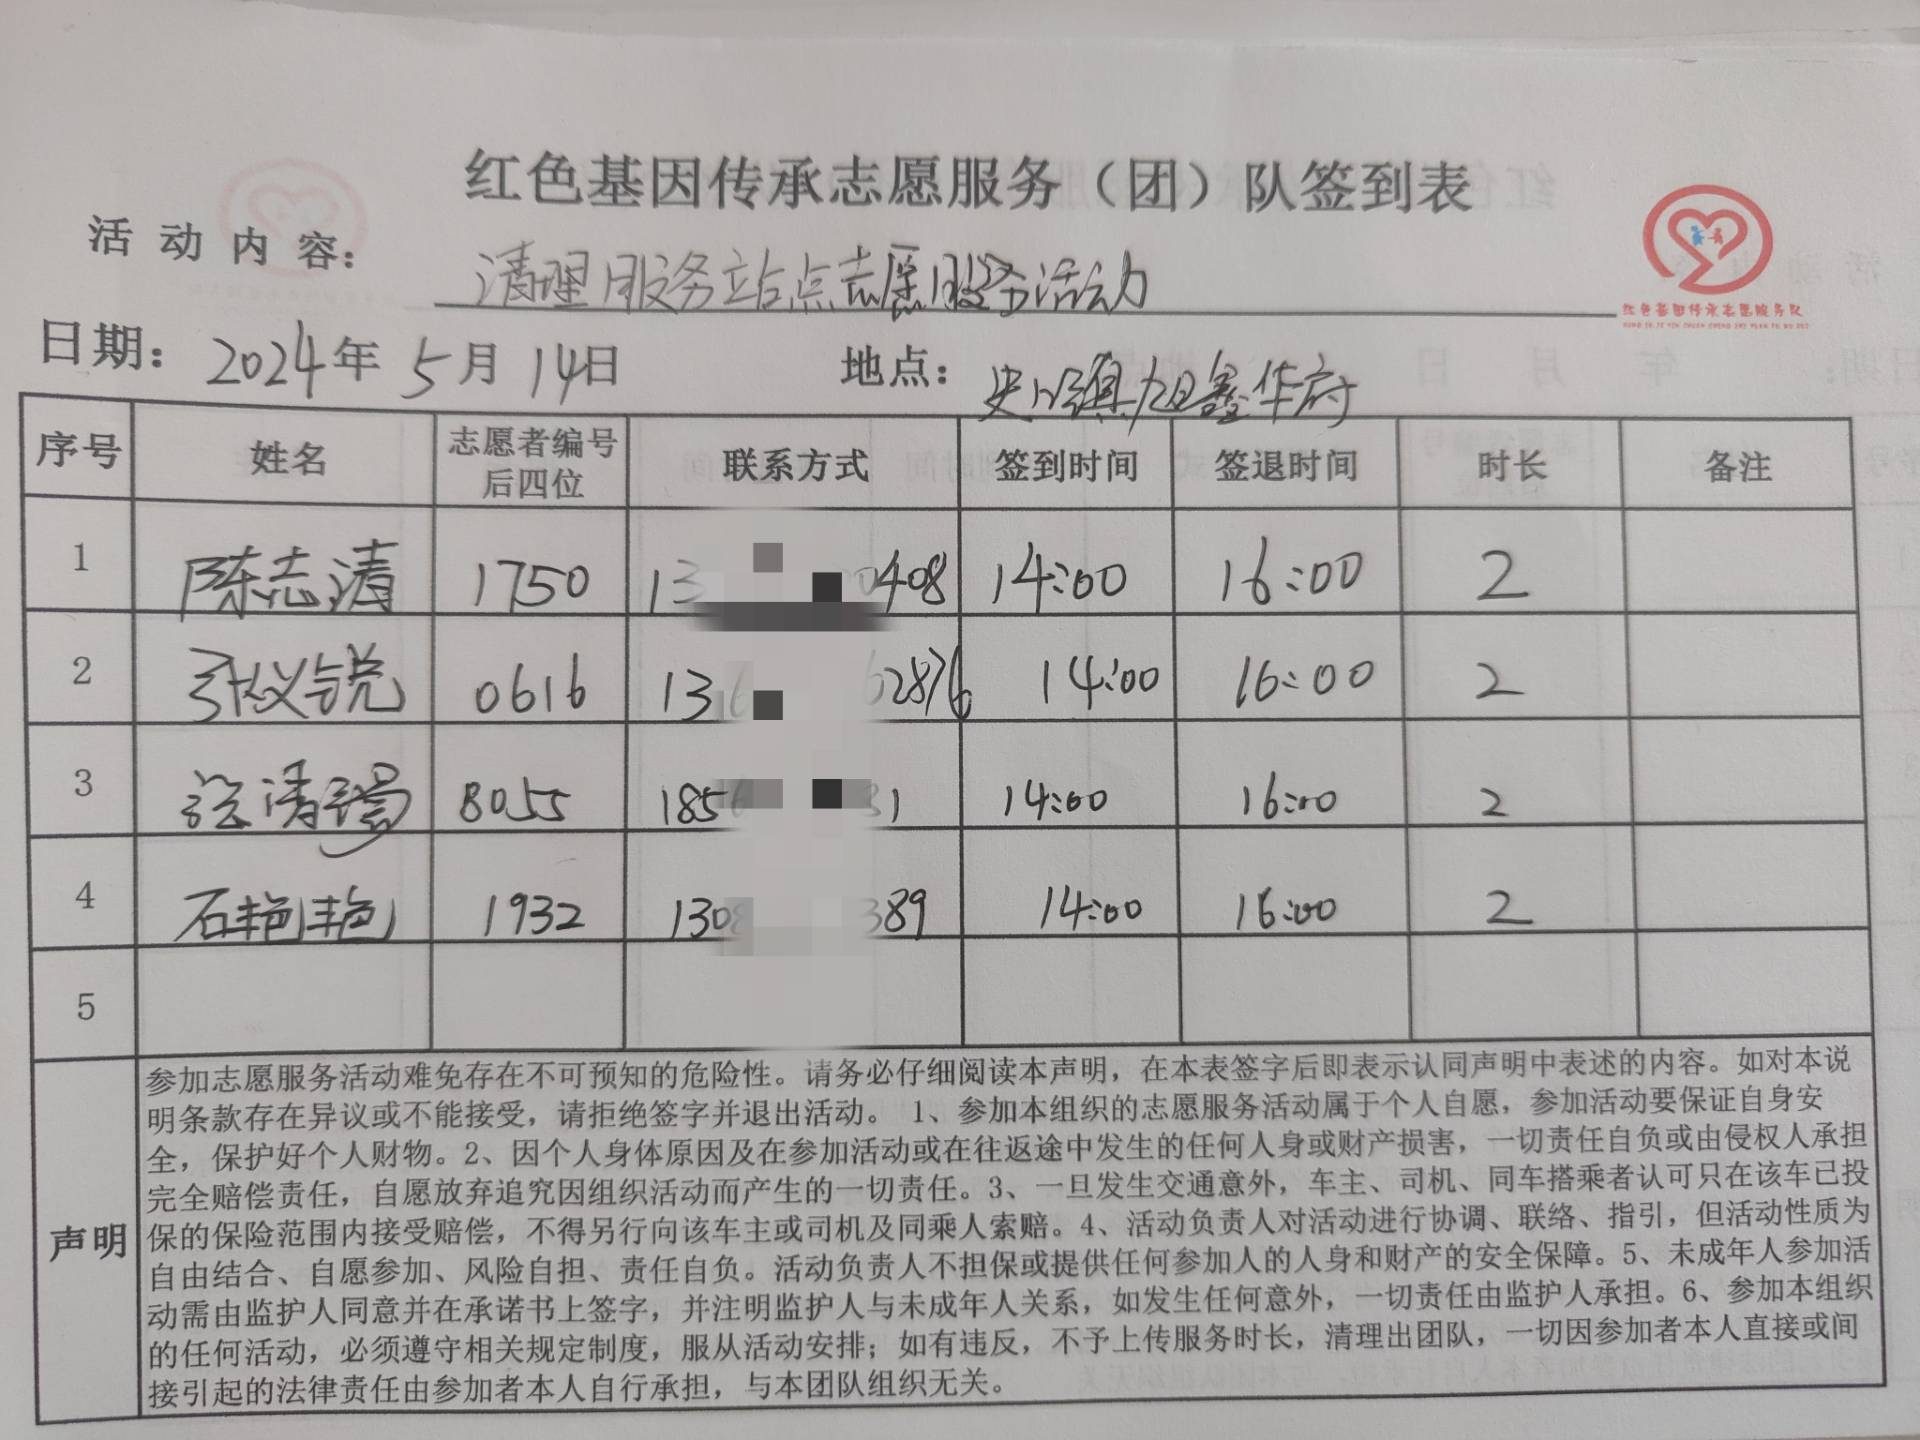 红色基因传承志愿服务（团）队签到表
活动内容：清理服务站点志愿服务活动
红色基因传承志愿服务队
HONG SE JI YIN CHUAN CHENG ZHI YUAN FU WU DUI
日期：2024年5月14日 地点：史口镇旭鑫华府
序号 姓名 志愿者编号后四位 联系方式 签到时间 签退时间 时长 备注
1 陈志清 1750 13 0408 14:00 16:00 2
2 张仪锐 0616 136 62876 14:00 16:00 2
3 清瑞 8055 1856 31 14:00 16:00 2
4 石艳艳 1932 1308 389 14:00 16:00 2
5
声明
参加志愿服务活动难免存在不可预知的危险性。请务必仔细阅读本声明，在本表签字后即表示认同声明中表述的内容。如对本说
明条款存在异议或不能接受，请拒绝签字并退出活动。 1、参加本组织的志愿服务活动属于个人自愿，参加活动要保证自身安
全，保护好个人财物。2、因个人身体原因及在参加活动或在往返途中发生的任何人身或财产损害，一切责任自负或由侵权人承担
完全赔偿责任，自愿放弃追究因组织活动而产生的一切责任。3、一旦发生交通意外，车主、司机、同车搭乘者认可只在该车已投
保的保险范围内接受赔偿，不得另行向该车主或司机及同乘人索赔。4、活动负责人对活动进行协调、联络、指引，但活动性质为
自由结合、自愿参加、风险自担、责任自负。活动负责人不担保或提供任何参加人的人身和财产的安全保障。5、未成年人参加活
动需由监护人同意并在承诺书上签字，并注明监护人与未成年人关系，如发生任何意外，一切责任由监护人承担。6、参加本组织
的任何活动，必须遵守相关规定制度，服从活动安排；如有违反，不予上传服务时长，清理出团队，一切因参加者本人直接或间
接引起的法律责任由参加者本人自行承担，与本团队组织无关。